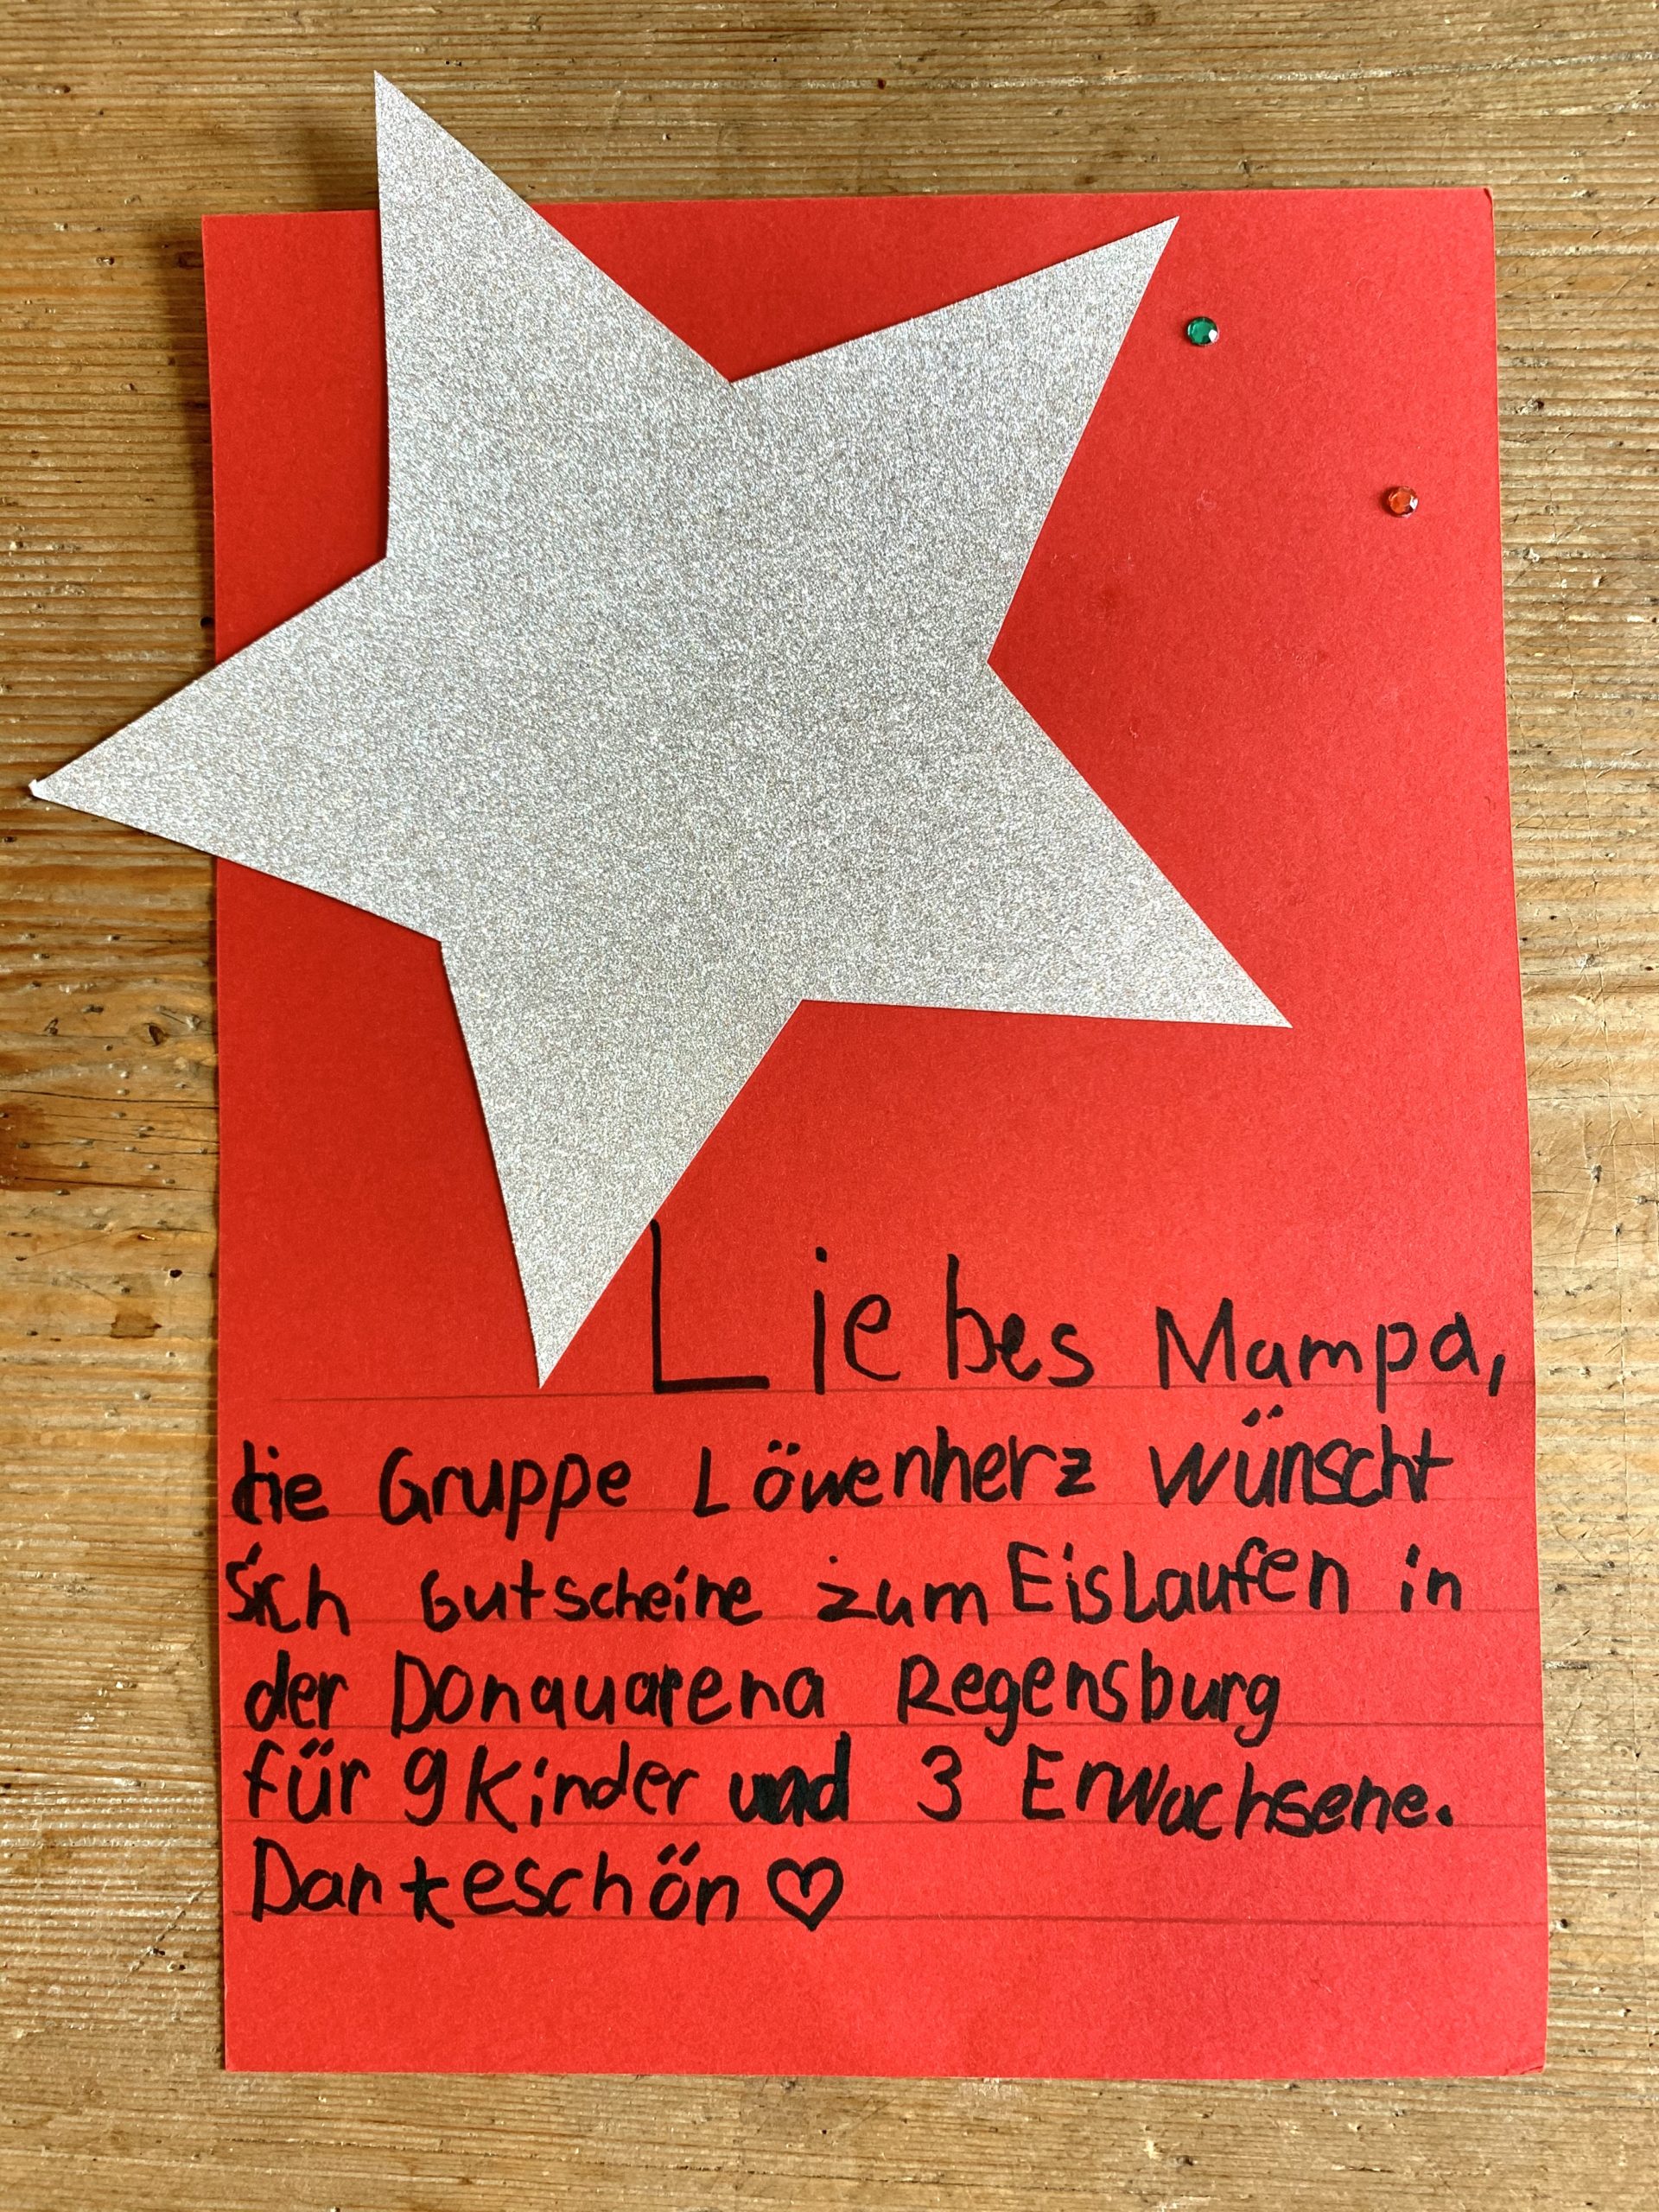 Liebes Mampa,
die Gruppe Löwenherz wünscht
sich Gutscheine zum Eislaufen in
der Donauarena Regensburg
für 9 Kinder und 3 Erwachsene.
Dankeschön ♡